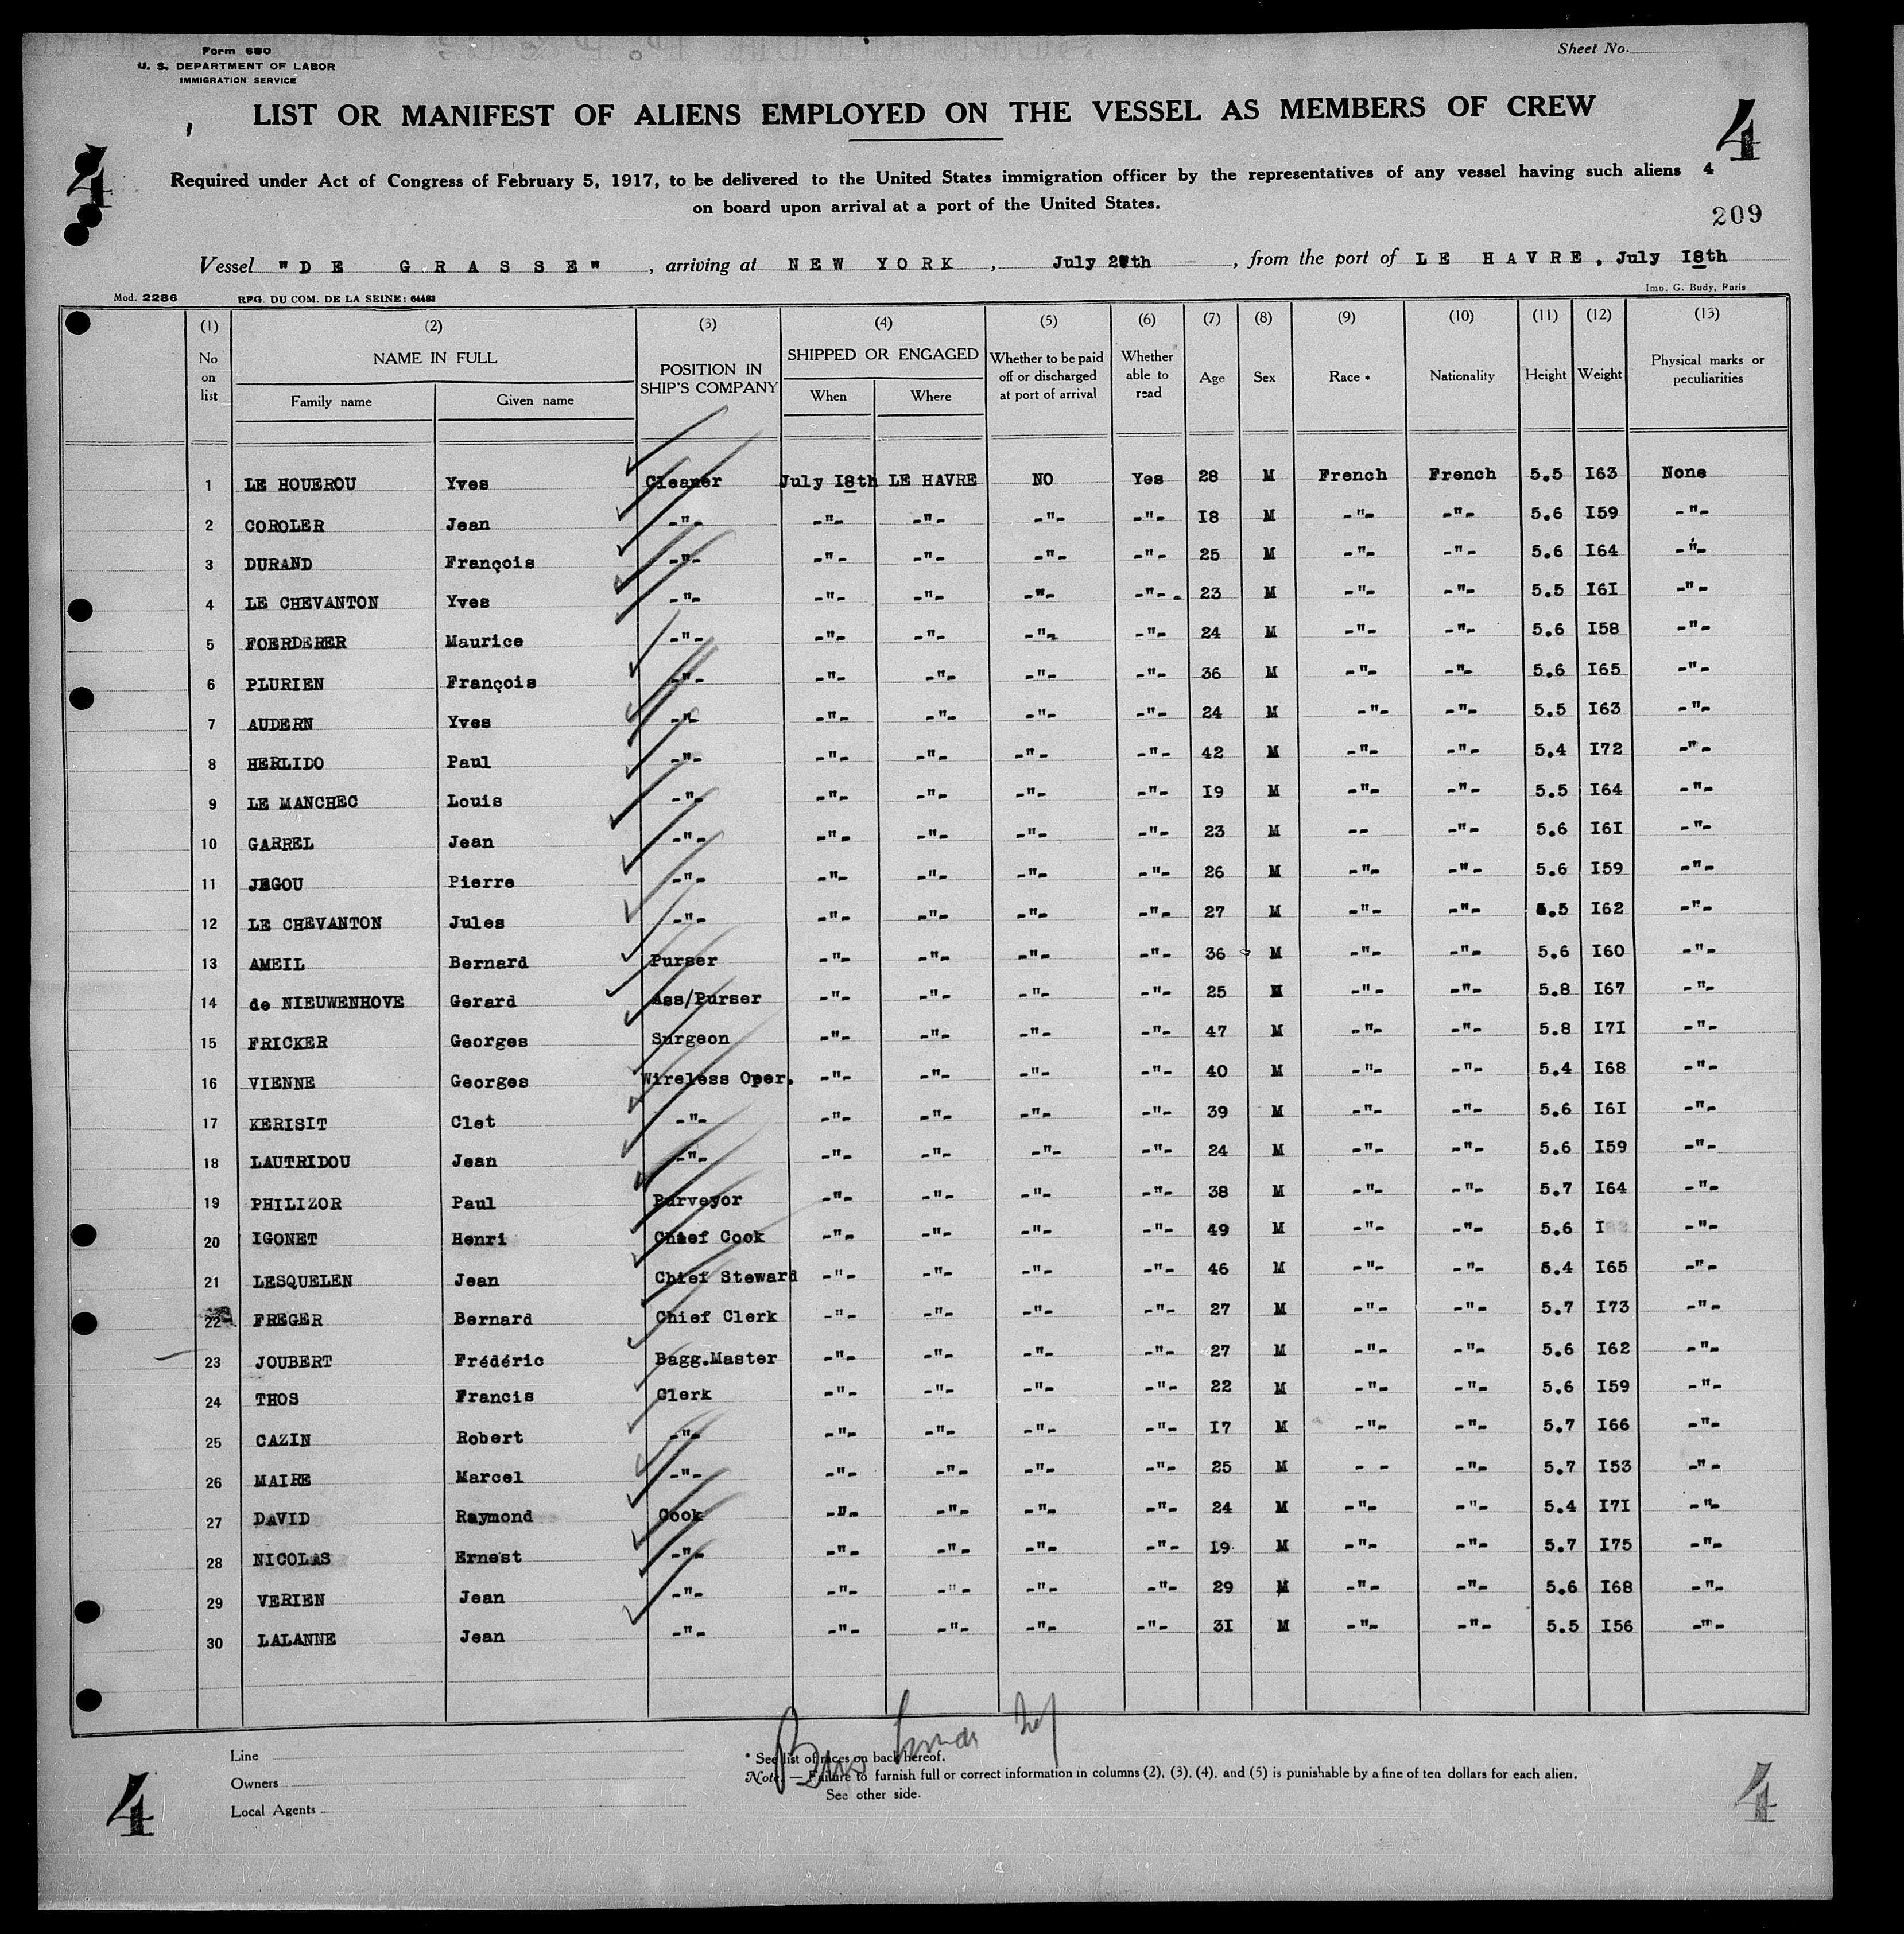 Form 680
U. S. DEPARTMENT OF LABOR
IMMIGRATION SERVICE
Sheet No.
LIST OR MANIFEST OF ALIENS EMPLOYED ON THE VESSEL AS MEMBERS OF CREW
4 4
Required under Act of Congress of February 5, 1917, to be delivered to the United States immigration officer by the representatives of any vessel having such aliens 4
on board upon arrival at a port of the United States.
209
Vessel "DE GRASSE", arriving at NEW YORK, July th, from the port of LE HAVRE, July I8th
Mod. 2286 REG. DU COM. DE LA SEINE: 64483 Imp. G. Budy, Paris
(1) (2) (3) (4) (5) (6) (7) (8) (9) (10) (11) (12) (13)
No on list NAME IN FULL Family name Given name POSITION IN SHIP'S COMPANY SHIPPED OR ENGAGED When Where Whether to be paid off or discharged at port of arrival Whether able to read Age Sex Race * Nationality Height Weight Physical marks or peculiarities
1 LE HOUEROU Yves Cleaner July I8th LE HAVRE NO Yes 28 M French French 5.5 I63 None
2 COROLER Jean -"- -"- -"- -"- -"- I8 M -"- -"- 5.6 I59 -"-
3 DURAND François -"- -"- -"- -"- -"- 25 M -"- -"- 5.6 I64 -"-
4 LE CHEVANTON Yves -"- -"- -"- -"- -"-. 23 M -"- -"- 5.5 I6I -"-
5 FOERDERER Maurice -"- -"- -"- -"- -"- 24 M -"- -"- 5.6 I58 -"-
6 PLURIEN François -"- -"- -"- -"- -"- 36 M -"- -"- 5.6 I65 -"-
7 AUDERN Yves -"- -"- -"- -"- -"- 24 M -"- -"- 5.5 I63 -"-
8 HERLIDO Paul -"- -"- -"- -"- -"- 42 M -"- -"- 5.4 I72 -"-
9 LE MANCHEC Louis -"- -"- -"- -"- -"- I9 M -"- -"- 5.5 I64 -"-
10 GARREL Jean -"- -"- -"- -"- -"- 23 M -- -"- 5.6 I6I -"-
11 JEGOU Pierre -"- -"- -"- -"- -"- 26 M -"- -"- 5.6 I59 -"-
12 LE CHEVANTON Jules -"- -"- -"- -"- -"- 27 M -"- -"- 5.5 I62 -"-
13 AMEIL Bernard Purser -"- -"- -"- -"- 36 M -"- -"- 5.6 I60 -"-
14 de NIEUWENHOVE Gerard Ass/Purser -"- -"- -"- -"- 25 M -"- -"- 5.8 I67 -"-
15 FRICKER Georges Surgeon -"- -"- -"- -"- 47 M -"- -"- 5.8 I7I -"-
16 VIENNE Georges Wireless Oper. -"- -"- -"- -"- 40 M -"- -"- 5.4 I68 -"-
17 KERISIT Clet -"- -"- -"- -"- -"- 39 M -"- -"- 5.6 I6I -"-
18 LAUTRIDOU Jean -"- -"- -"- -"- -"- 24 M -"- -"- 5.6 I59 -"-
19 PHILIZOR Paul Purveyor -"- -"- -"- -"- 38 M -"- -"- 5.7 I64 -"-
20 IGONET Henri Chief Cook -"- -"- -"- -"- 49 M -"- -"- 5.6 -"-
21 LESQUELEN Jean Chief Steward -"- -"- -"- -"- 46 M -"- -"- 5.4 I65 -"-
22 FREGER Bernard Chief Clerk -"- -"- -"- -"- 27 M -"- -"- 5.7 I73 -"-
23 JOUBERT Frédéric Bagg.Master -"- -"- -"- -"- 27 M -"- -"- 5.6 I62 -"-
24 THOS Francis Clerk -"- -"- -"- -"- 22 M -"- -"- 5.6 I59 -"-
25 CAZIN Robert -"- -"- -"- -"- -"- I7 M -"- -"- 5.7 I66 -"-
26 MAIRE Marcel -"- -"- -"- -"- -"- 25 M - - -"- 5.7 I53 -"-
27 DAVID Raymond Cook -"- -"- -"- -"- 24 M -"- -"- 5.4 I7I -"-
28 NICOLAS Ernest -"- -"- -"- -"- -"- I9 M -"- -"- 5.7 I75 -"-
29 VERIEN Jean -"- -"- -"- -"- -"- 29 M -"- -"- 5.6 I68 -"-
30 LALANNE Jean -"- -"- -"- -"- -"- 3I M -"- -"- 5.5 I56 -"-
Line
Owners
Local Agents
* See list of races on back hereof.
Note. — Failure to furnish full or correct information in columns (2), (3), (4), and (5) is punishable by a fine of ten dollars for each alien.
See other side.
4 4